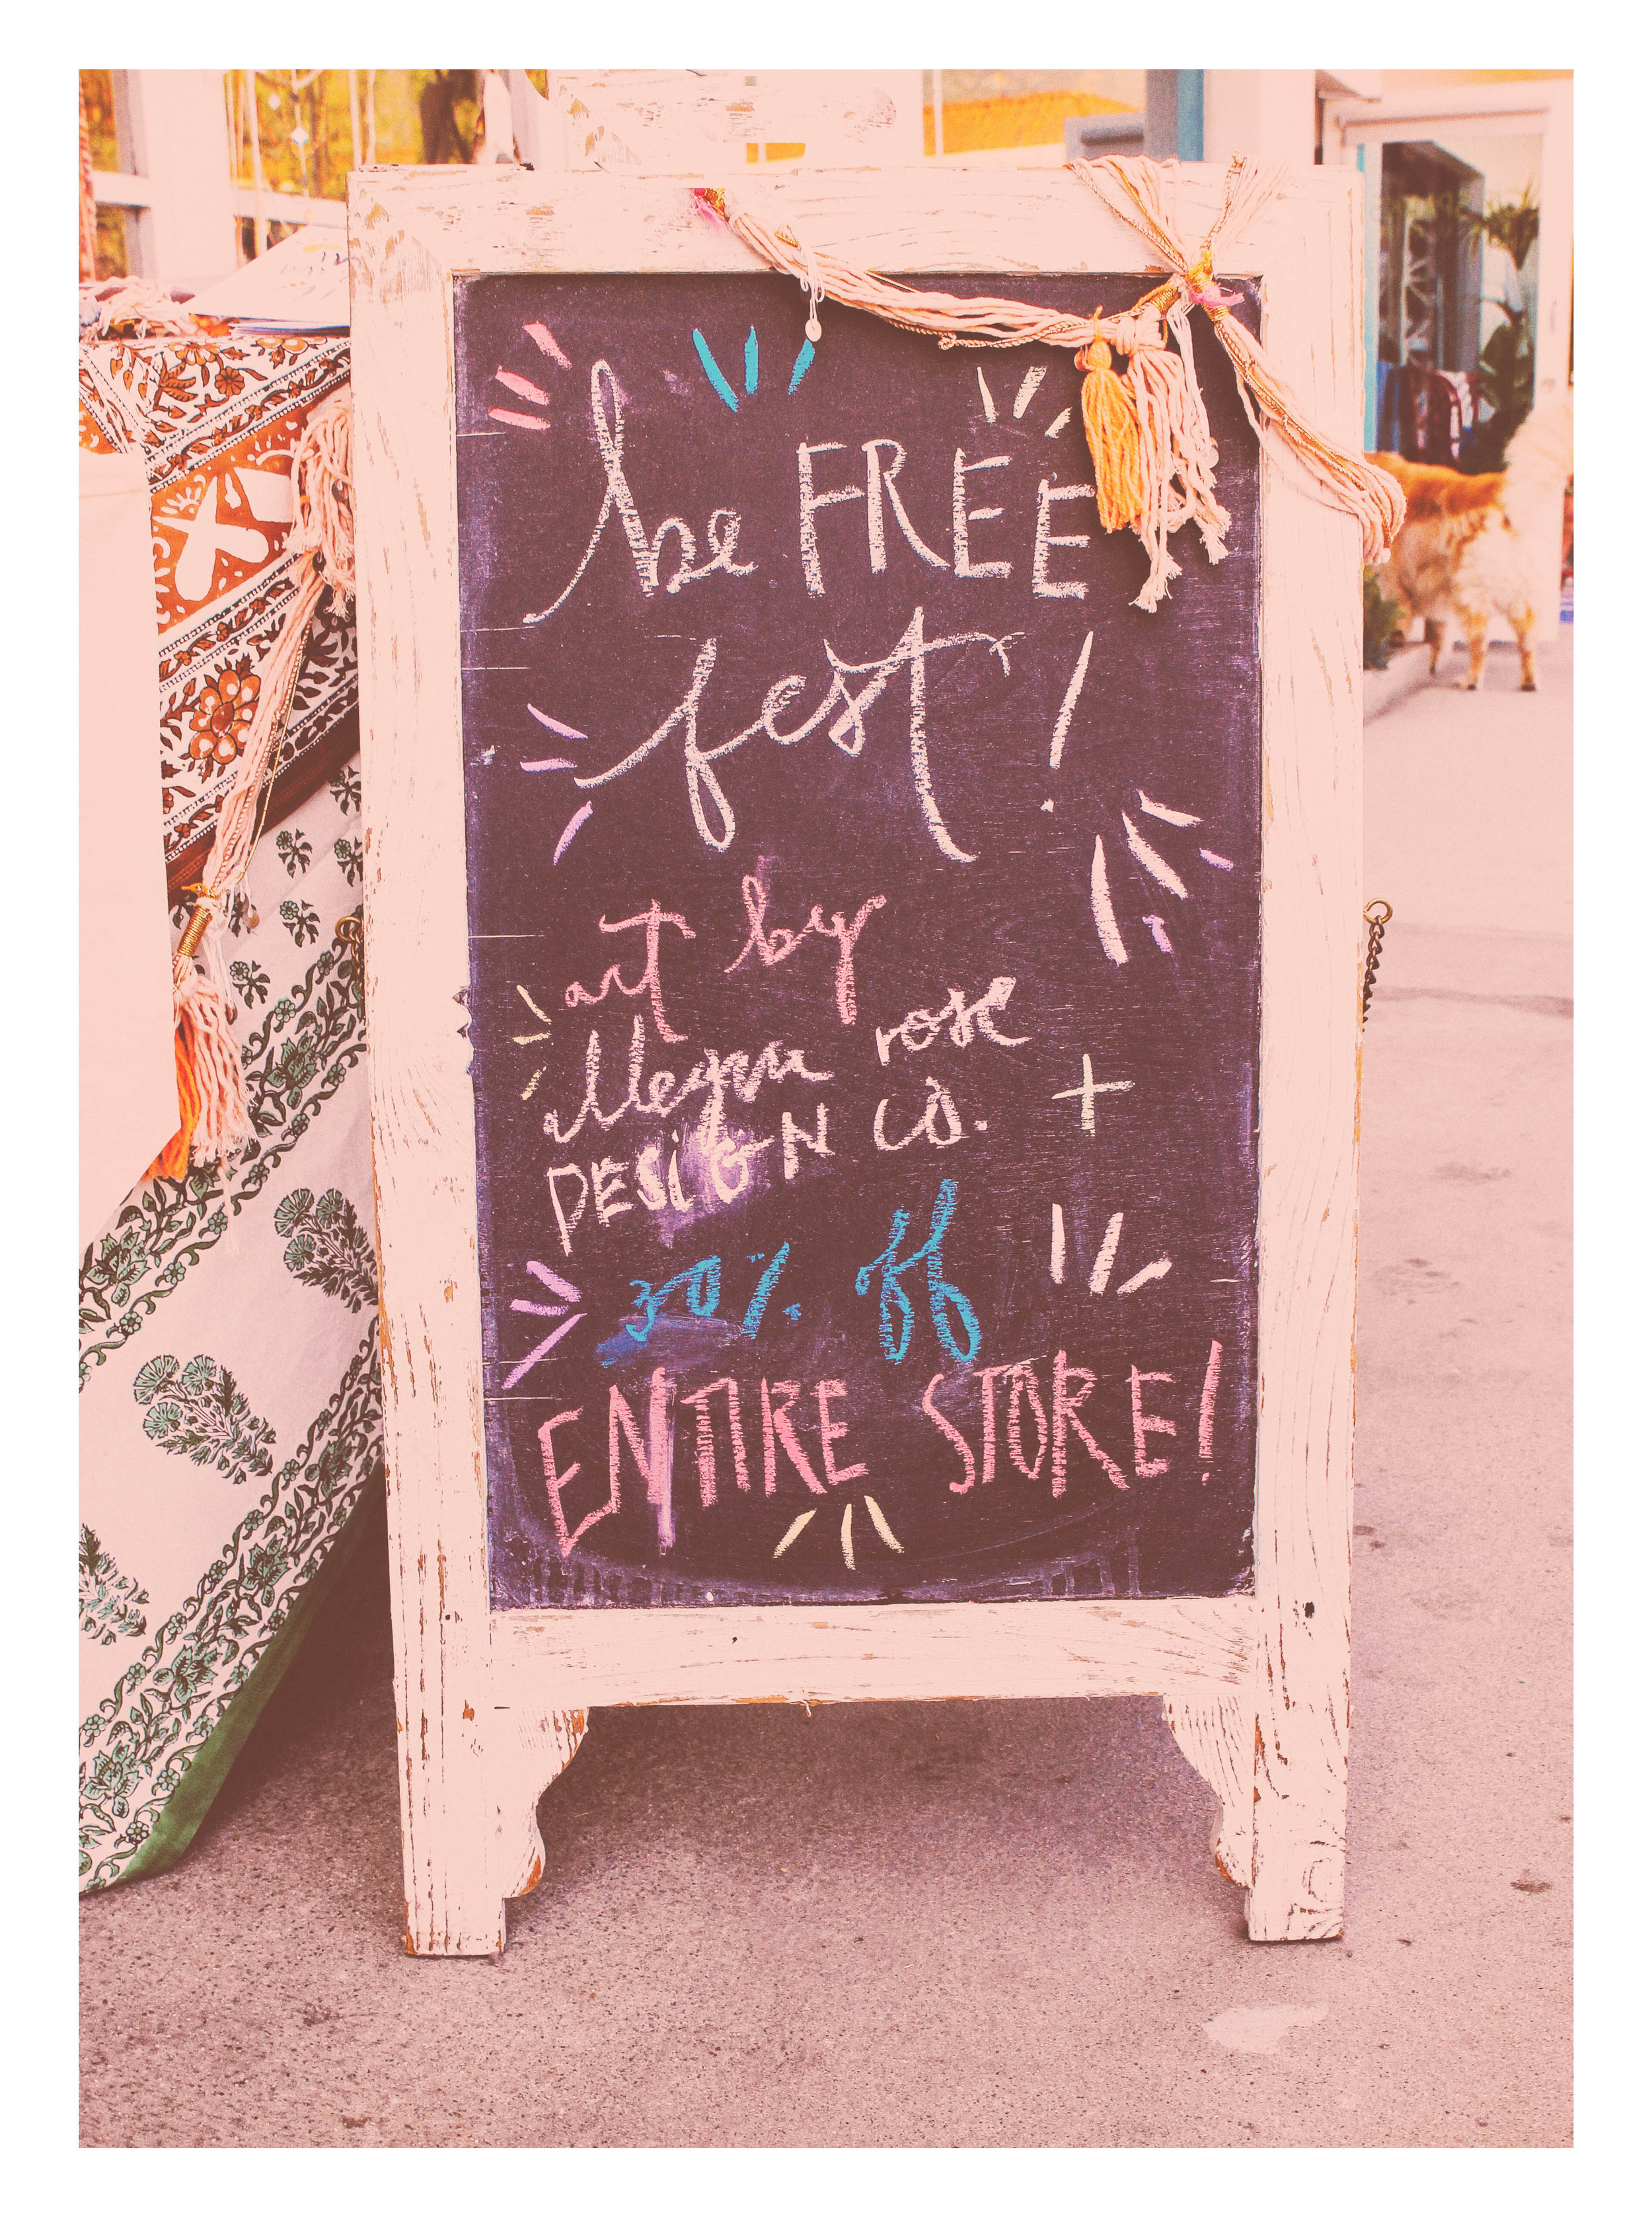 be FREE
fest!
art by
Megan rose
DESIGN CO. +
30% off
ENTIRE STORE!